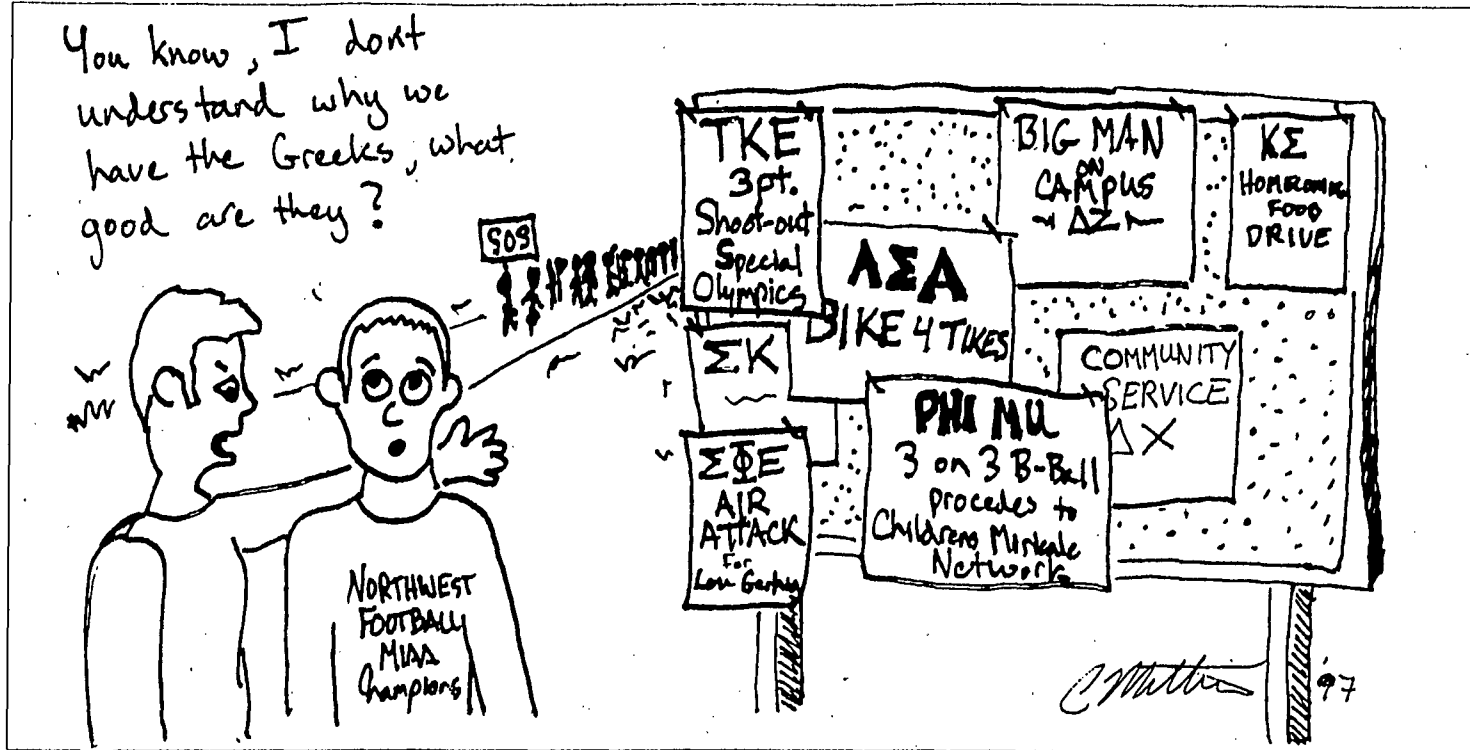 You know, I dont
understand why we
have the Greeks, what
good are they?
SOS
NORTHWEST
FOOTBALL
MIAA
Champions
TKE
3pt.
Shoot-out
Special
Olympics
BIG MAN
ON
CAMPUS
ΔΣ
KΣ
HOMECOMING
FOOD
DRIVE
ΛΣΑ
BIKE 4 TIKES
ΣK
COMMUNITY
SERVICE
ΔX
ΣΦΕ
AIR
ATTACK
For
Lou Gehrig
PHI MU
3 on 3 B-Ball
procedes to
Childrens Mirkale
Network
'97